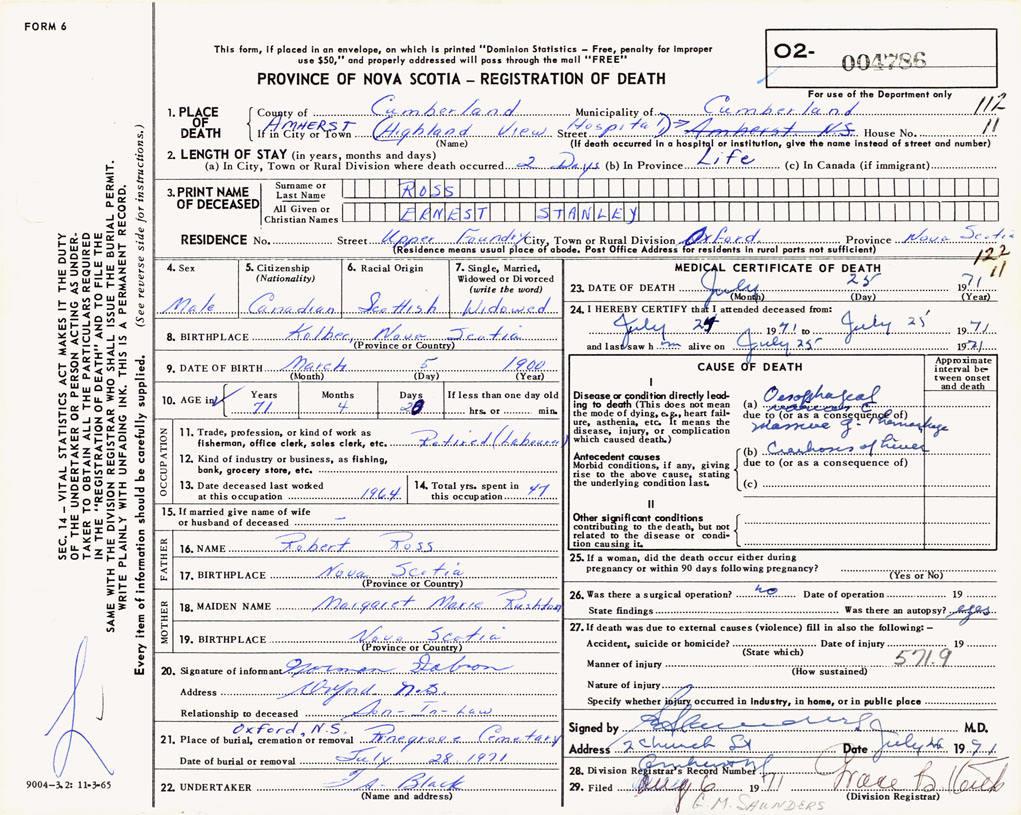 FORM 6
This form, if placed in an envelope, on which is printed "Dominion Statistics – Free, penalty for improper
use $50," and properly addressed will pass through the mail "FREE"
PROVINCE OF NOVA SCOTIA – REGISTRATION OF DEATH
O2- 004786
For use of the Department only
112
11
1. PLACE OF DEATH
County of Cumberland Municipality of Cumberland
AMHERST
If in City or Town (Highland View Hospital) Street Amherst N.S. House No.
(Name) (If death occurred in a hospital or institution, give the name instead of street and number)
2. LENGTH OF STAY (in years, months and days)
(a) In City, Town or Rural Division where death occurred 2 Days (b) In Province Life (c) In Canada (if immigrant)
3. PRINT NAME OF DECEASED
Surname or Last Name ROSS
All Given or Christian Names ERNEST STANLEY
RESIDENCE No. Street Upper Foundry City, Town or Rural Division Oxford Province Nova Scotia
(Residence means usual place of abode. Post Office Address for residents in rural parts not sufficient)
122
11
4. Sex
Male
5. Citizenship (Nationality)
Canadian
6. Racial Origin
Scottish
7. Single, Married, Widowed or Divorced (write the word)
Widowed
8. BIRTHPLACE Nova Scotia
(Province or Country)
9. DATE OF BIRTH March 5 1900
(Month) (Day) (Year)
10. AGE in Years Months Days If less than one day old
71 4 20 hrs. or min.
OCCUPATION
11. Trade, profession, or kind of work as
fisherman, office clerk, sales clerk, etc. Retired (Labourer)
12. Kind of industry or business, as fishing,
bank, grocery store, etc.
13. Date deceased last worked
at this occupation 1964
14. Total yrs. spent in
this occupation 47
15. If married give name of wife
or husband of deceased –
FATHER
16. NAME Robert Ross
17. BIRTHPLACE Nova Scotia
(Province or Country)
MOTHER
18. MAIDEN NAME Margaret Marie Rushton
19. BIRTHPLACE Nova Scotia
(Province or Country)
20. Signature of informant Norman
Address Oxford N.S.
Relationship to deceased Son-In-Law
Oxford, N.S.
21. Place of burial, cremation or removal Pinegrove Cemetary
Date of burial or removal July 28 1971
22. UNDERTAKER Black
(Name and address)
MEDICAL CERTIFICATE OF DEATH
23. DATE OF DEATH July 25 1971
(Month) (Day) (Year)
24. I HEREBY CERTIFY that I attended deceased from:
July 24 1971 to July 25 1971
and last saw h m alive on July 25 1971
CAUSE OF DEATH
Approximate interval between onset and death
I
Disease or condition directly leading to death (This does not mean
the mode of dying, e.g., heart failure, asthenia, etc. It means the
disease, injury, or complication
which caused death.)
(a) Oesophageal
due to (or as a consequence of)
massive
Antecedent causes
Morbid conditions, if any, giving
rise to the above cause, stating
the underlying condition last.
(b) of Liver
due to (or as a consequence of)
(c)
II
Other significant conditions
contributing to the death, but not
related to the disease or condition causing it.
25. If a woman, did the death occur either during
pregnancy or within 90 days following pregnancy?
(Yes or No)
26. Was there a surgical operation? no Date of operation 19
State findings Was there an autopsy? yes
27. If death was due to external causes (violence) fill in also the following: –
Accident, suicide or homicide? Date of injury 19
(State which)
571.9
Manner of injury
(How sustained)
Nature of injury
Specify whether injury occurred in industry, in home, or in public place
Signed by M.D.
Address 2 Church St Date July 26 1971
Amherst
28. Division Registrar's Record Number
29. Filed Aug 6 1971
(Division Registrar)
G.M. SAUNDERS
SEC. 14 – VITAL STATISTICS ACT MAKES IT THE DUTY
OF THE UNDERTAKER OR PERSON ACTING AS UNDERTAKER TO OBTAIN ALL THE PARTICULARS REQUIRED
IN THE "REGISTRATION OF DEATH" AND TO FILE THE
SAME WITH THE DIVISION REGISTRAR WHO SHALL ISSUE THE BURIAL PERMIT.
WRITE PLAINLY WITH UNFADING INK. THIS IS A PERMANENT RECORD.
Every item of information should be carefully supplied. (See reverse side for instructions.)
9004-3.2: 11-3-65